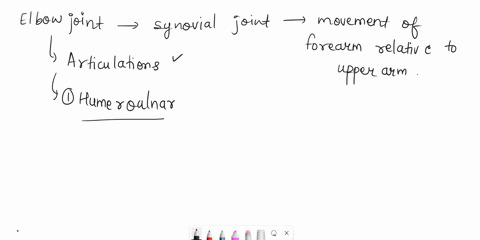 Elbow joint → synovial joint → movement of
forearm relative to
upper arm.
↳ Articulations ✓
↳ ① Humeroulnar